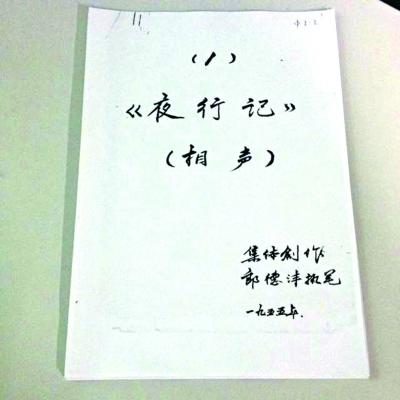 (1)
《夜行记》
(相声)
集体創作
郎德沣执笔
一九五五年.